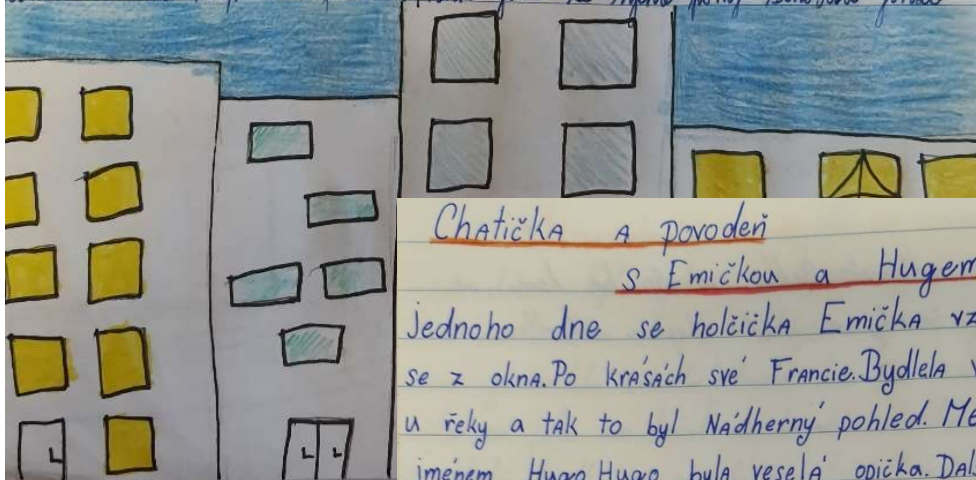 Chatička a povodeň
s Emičkou a Hugem
jednoho dne se holčička Emička vz
se z okna. Po krásách své Francie. Bydlela v
u řeky a tak to byl Nádherný pohled. Mě
jménem Hugo. Hugo byla veselá opička. Dal